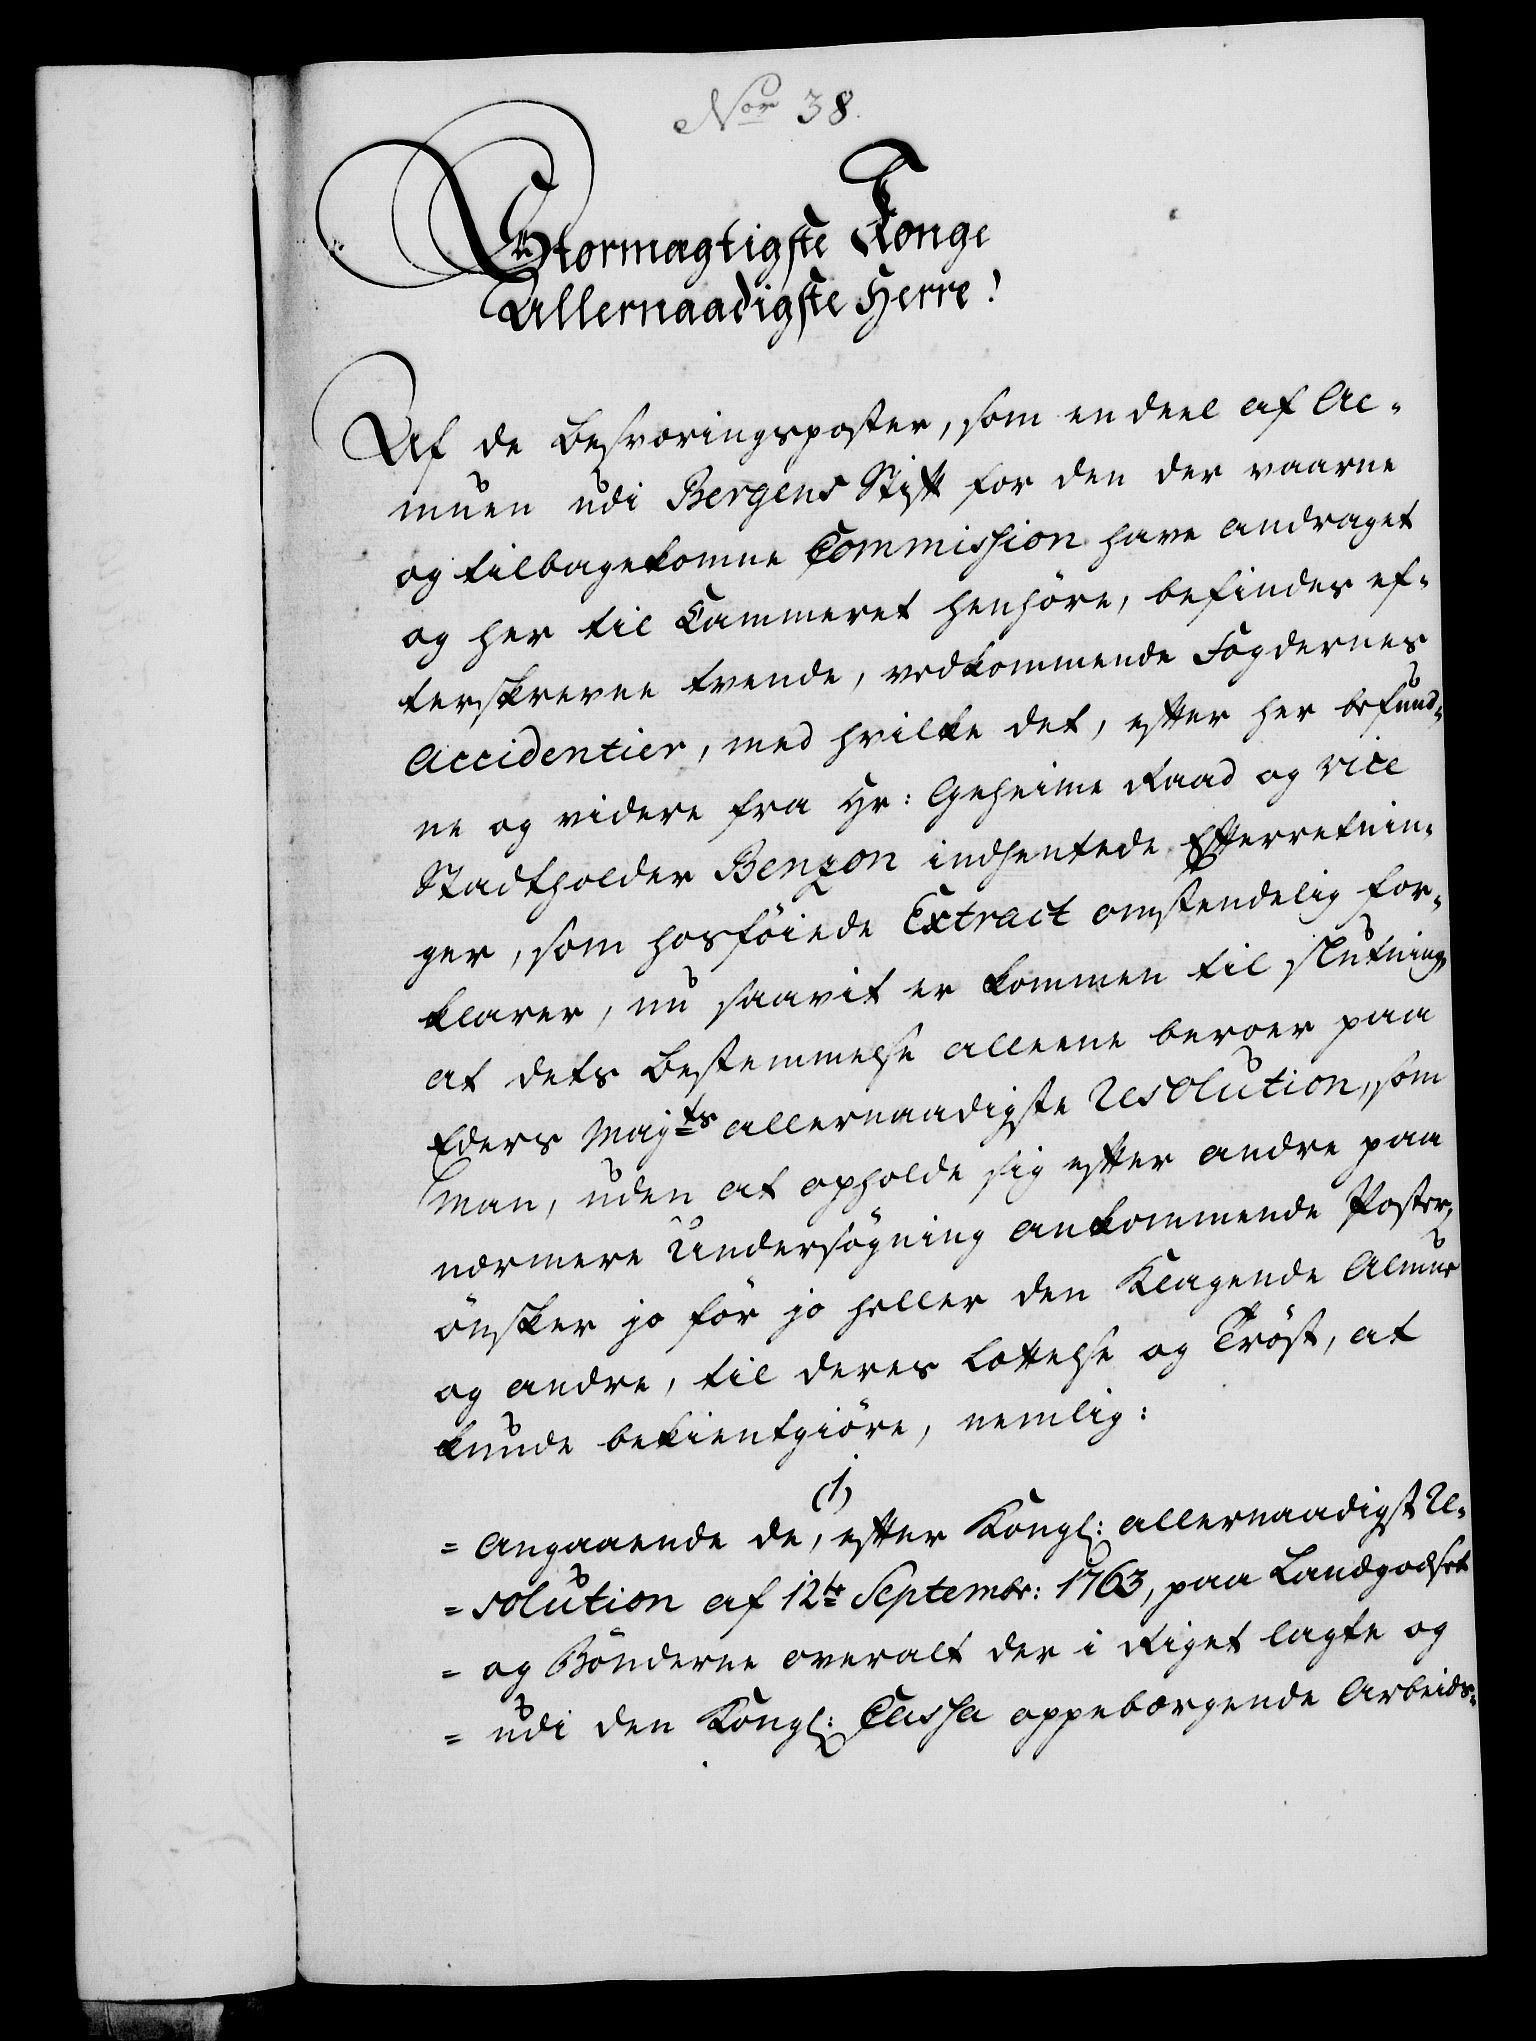 Nor 38.
Stormægtigste Konge
Allernaadigste Herre!
Af de Besværingsposter, som en deel af Al-
muen udi Bergens Stift for den der værne
og tilbagekomne Commission have andraget
og her til Kammeret henhøre, befindes ef-
terskrevne tvende, vedkommende Fogdernes
Accidentier, med hvilke det, efter her befund-
ne og videre fra Hr: Geheime Raad og Vice
Stadtholder Benzon indhentede Efterretnin-
ger, som hosføiede Extract omstendelig for-
klarer, nu saavit er kommen til slutning,
at dets Bestemmelse alleene beroer paa
Eders Maj:ts allernaadigste Resolution, som
man, uden at opholde sig efter andre paa
nærmere Undersøgning ankommende Poster,
ønsker jo før jo heller den Klagende Almue
og andre, til deres Lættelse og Trøst, at
kunde bekientgiøre, nemlig:
(1)
= Angaaende de, efter Kongl: allernaadigst Re-
= solution af 12te Septembr: 1763, paa Landgodset
= og Bønderne overalt der i Riget lagte og
= udi den Kongl: Cassa oppebærgende Arbeids-